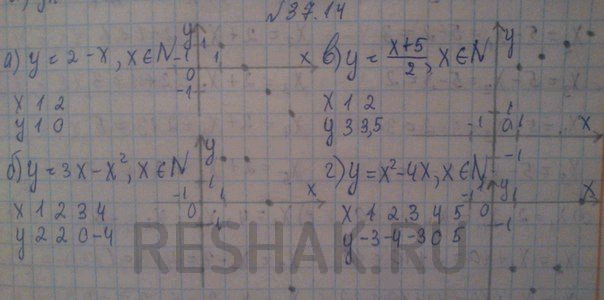 №37.14
а) y = 2 - x, x ∈ N
x 1 2
y 1 0
б) y = 3x - x², x ∈ N
x 1 2 3 4
y 2 2 0 -4
в) y = \frac{x+5}{2}, x ∈ N
x 1 2
y 3 3,5
г) y = x² - 4x, x ∈ N
x 1 2 3 4 5
y -3 -4 -3 0 5
y
1
-1 1 x
0
-1
y
1
-1 1 x
0
-1
y
1
-1 0 1 x
-1
y
1
-1 1 x
0
-1
RESHAK.RU